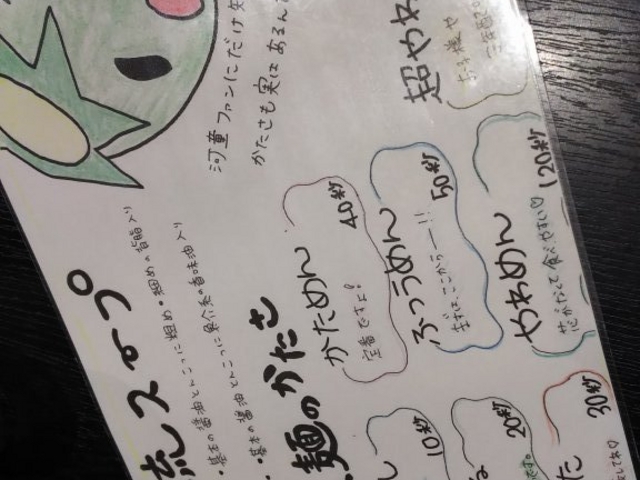 流スープ
・基本の醤油とんこつに粗め・細めの背脂入り
・基本の醤油とんこつに魚介系の香味油入り
河童ファンにだけ
かたさも実はあるん
麺のかたさ
かためん 40秒
定番ですよ!
ふつうめん 50秒
まずは、ここから――!!
やわめん 120秒
食べやすい♡
超やわ
お子様や
10秒
20秒
です。
た 30秒